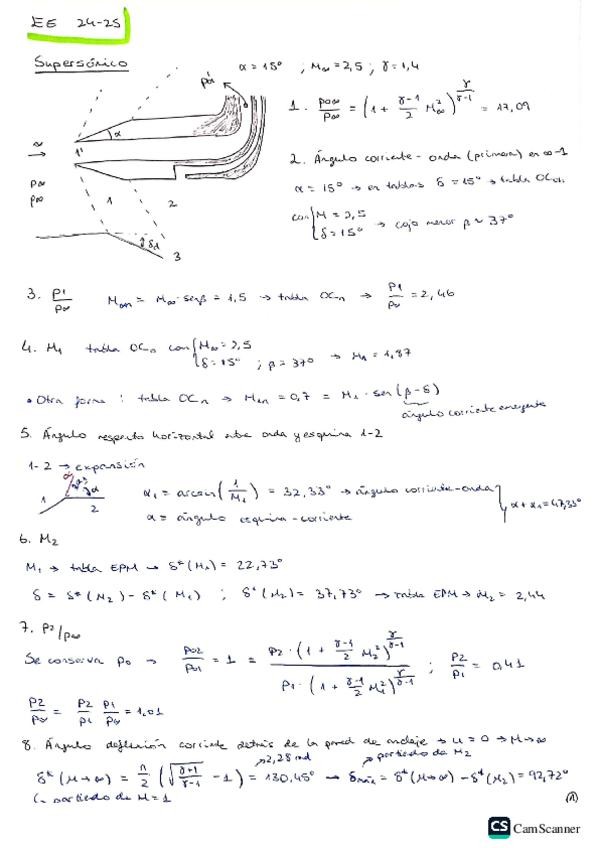 EE 24-25
Supersónico
α = 15° ; M∞ = 2,5 ; γ = 1,4
1. p0∞/p∞ = (1 + γ-1/2 M∞²)^γ/γ-1 = 17,09
α
∞
1'
p0∞
p∞
1
2
δ1
3
2. Ángulo corriente - onda (primera) en ∞-1
α = 15° → en tablas δ = 15° → tabla OCα,
con { M = 2,5
δ = 15° → cojo menor β ≈ 37°
3. p1/p∞ M∞n = M∞·senβ = 1,5 → tabla OCn → p1/p∞ = 2,46
4. M1 tabla OCα con { M∞ = 2,5
δ = 15° ; β = 37° → M1 = 1,87
• Otra forma : tabla OCn → M1n = 0,7 = M1 · sen (β - δ)
ángulo corriente emergente
5. Ángulo respecto horizontal entre onda y esquina 1-2
1-2 → expansión
1
2
α
α1 = arcsen (1/M1) = 32,33° → ángulo corriente-onda
α = ángulo esquina-corriente
} α + α1 = 47,33°
6. M2
M1 → tabla EPM → δ*(M1) = 22,73°
δ = δ*(M2) - δ*(M1) ; δ*(M2) = 37,73° → tabla EPM → M2 = 2,44
7. p2/p∞
Se conserva p0 → p02/p01 = 1 = p2·(1 + γ-1/2 M2²)^γ/γ-1 / p1·(1 + γ-1/2 M1²)^γ/γ-1 ; p2/p1 = 0,41
p2/p∞ = p2/p1 p1/p∞ = 1,01
8. Ángulo deflexión corriente detrás de la pared de anclaje → u = 0 → M→∞
2,28 rad
partiendo de M2
δ*(M→∞) = π/2 (√γ+1/γ-1 - 1) = 130,45° → δmáx = δ*(M→∞) - δ*(M2) = 92,72°
↳ partiendo de M=1
(1)
CS CamScanner